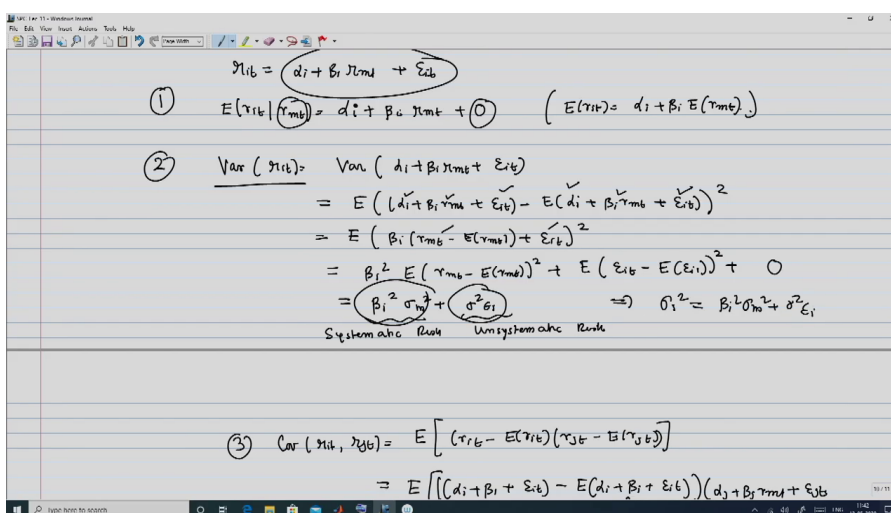 SPC Lec 11 - Windows Journal
File Edit View Insert Actions Tools Help
Page Width
r_it = α_i + β_i r_mt + ε_it
① E(r_it | r_mt) = α_i + β_i r_mt + 0 ( E(r_it) = α_i + β_i E(r_mt) )
② Var ( r_it) = Var ( α_i + β_i r_mt + ε_it)
= E ( (α_i + β_i r_mt + ε_it) - E(α_i + β_i r_mt + ε_it) )²
= E ( β_i (r_mt - E(r_mt)) + ε_it )²
= β_i² E ( r_mt - E(r_mt))² + E ( ε_it - E(ε_it))² + 0
= β_i² σ_m² + σ²ε_i ⇒ σ_i² = β_i² σ_m² + σ²ε_i
Systematic Risk Unsystematic Risk
③ Cov ( r_it, r_jt) = E [ (r_it - E(r_it) (r_jt - E(r_jt)) ]
= E [[(α_i + β_i + ε_it) - E(α_i + β_i + ε_it) ) (α_j + β_j r_mt + ε_jt
10 / 11
Type here to search
ENG
11:42